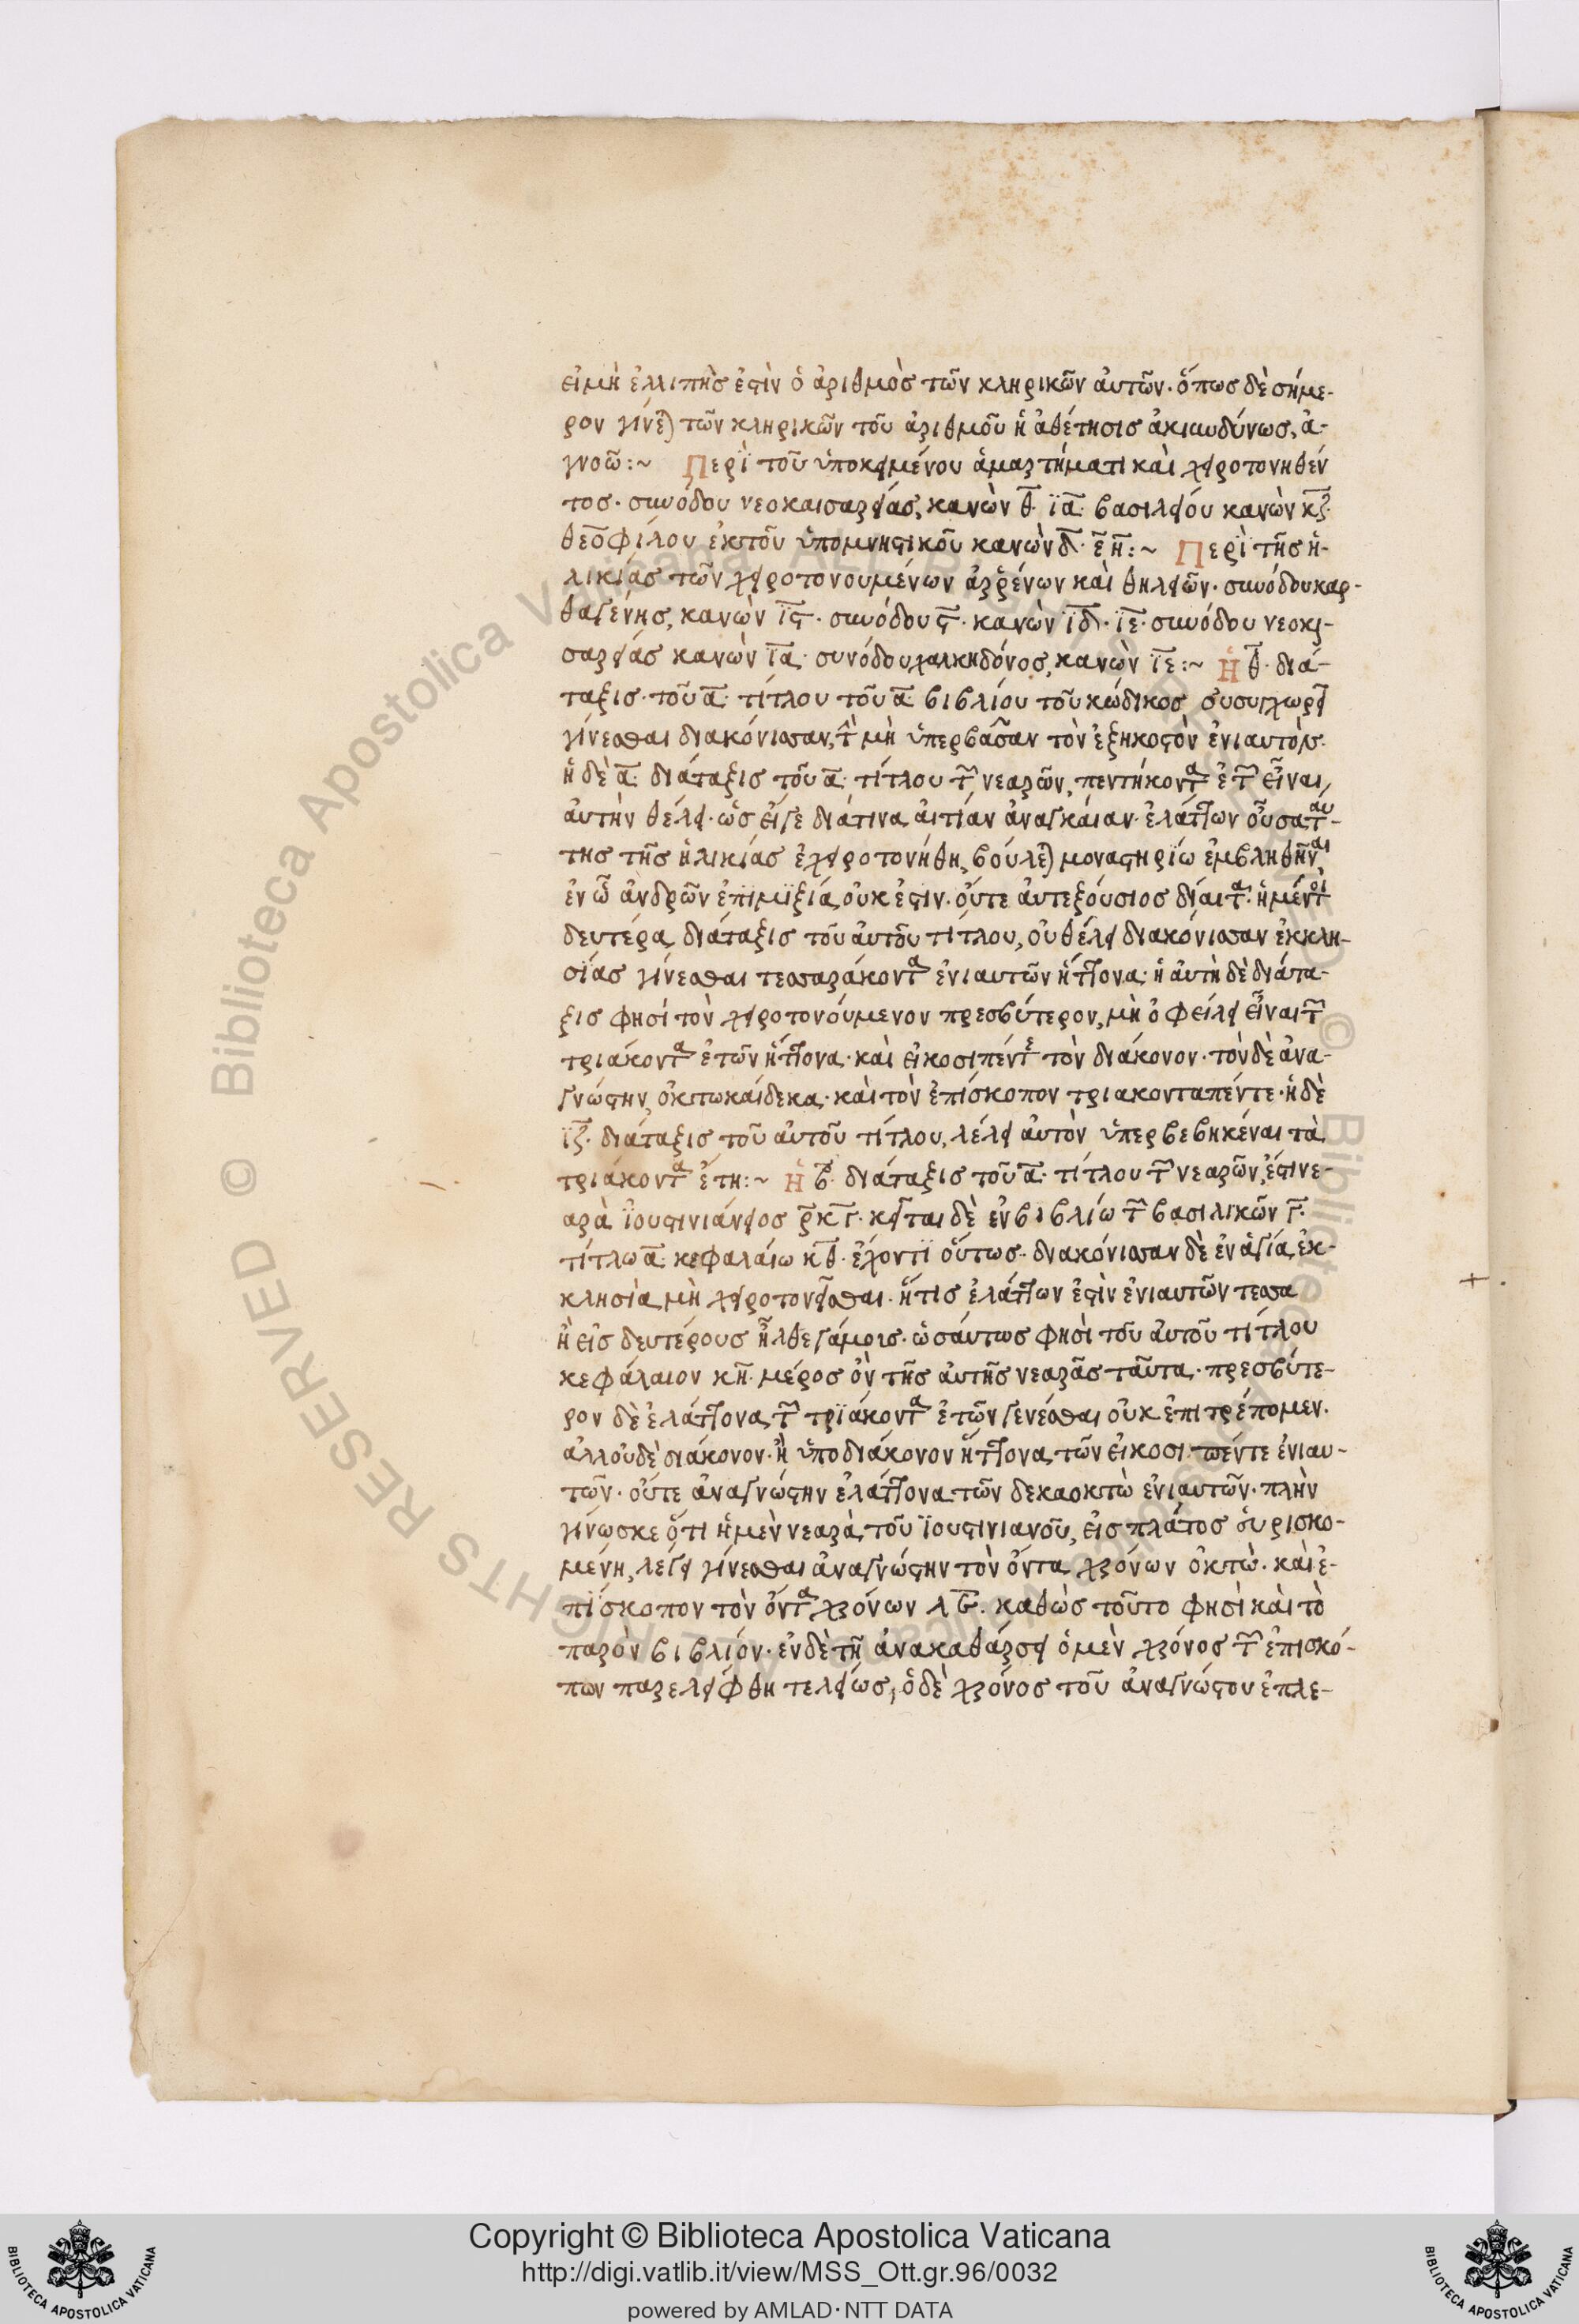 εἰμὴ ἐλλιπὴς ἐστὶν ὁ ἀριθμὸς τῶν κληρικῶν ἀυτῶν· ὅπως δὲ σήμε-
ρον γίνε) τῶν κληρικῶν τοῦ ἀριθμοῦ ἡ ἀθέτησις ἀκινδύνως, ἀ-
γνοῶ:~ Περὶ τοῦ ὑποκειμένου ἁμαρτήματι καὶ χειροτονηθέν
τος· συνόδου νεοκαισαρείας, κανὼν θ· ϊα· βασιλείου κανὼν κζ·
θεοφίλου ἐκτοῦ ὑπομνηστικοῦ κανὼν δ· ε η:~ Περὶ τῆς ἡ-
λικίας τῶν χειροτονουμένων ἀρῥένων καὶ θηλειῶν· συνόδου καρ-
θαγένης, κανὼν ϊϛ· συνόδου ϛ· κανὼν ϊδ· ϊε· συνόδου νεοκι-
σαρείας κανὼν ϊα· συνόδου χαλκηδόνος, κανὼν ϊε:~ Ἡ θ· διά-
ταξις· τοῦ α· τίτλου τοῦ α· βιβλίου τοῦ κώδικος ὀυ συγχωρεῖ
γίνεσθαι διακόνισσαν, τ μὴ ὑπερβᾶσαν τὸν ἑξηκοστὸν ἐνιαυτόν·
ἡ δὲ α· διάταξις τοῦ α· τίτλου τ νεαρῶν, πεντήκοντα ἐτ εἶναι,
ἀυτὴν θέλει· ὡς ἐίγε διάτινα ἀιτίαν ἀναγκάιαν ἐλάττων οὖσα ταύ-
της τῆς ἡλικίας ἐχειροτονήθη, βούλε) μοναστηρίω ἐμβληθῆναι
ἐν ὧ ἀνδρῶν ἐπιμϊξία οὐκ ἐστιν· οὔτε ἀυτεξόυσιος δίαιτα· ἡ μέντοι
δευτέρα διάταξις τοῦ ἀυτοῦ τίτλου, οὐ θέλει διακόνισσαν ἐκκλη-
σίας γίνεσθαι τεσσαράκοντα ἐνιαυτῶν ἥττονα· ἡ ἀυτὴ δὲ διάτα-
ξις φησὶ τὸν χειροτονόυμενον πρεσβύτερον, μὴ ὀφείλει εἶναι τ
τριάκοντα ἐτῶν ἥττονα· καὶ εἰκοσιπέντε τὸν διάκονον· τὸν δὲ ἀνα-
γνώστην ὀκτωκαίδεκα· καὶ τὸν ἐπίσκοπον τριακονταπέντε· ἡ δὲ
ϊζ· διάταξις τοῦ ἀυτοῦ τίτλου, λέγει ἀυτὸν ὑπερβεβηκέναι τὰ
τριάκοντα ἔτη:~ Ἡ β· διάταξις τοῦ α· τίτλου τ νεαρῶν, ἐστι νε-
αρὰ ϊουστινιάνειος ρκγ· κεῖται δὲ ἐν βιβλίω τ βασιλικῶν γ·
τίτλω α· κεφαλαίω κθ· ἔχοντι οὕτως· διακόνισσαν δὲ ἐν ἁγία ἐκ-
κλησία μὴ χειροτονεῖσθαι· ἥτις ἐλάττων ἐστὶν ἐνιαυτῶν τεσσα
ἢ εἰς δευτέρους ἦλθε γάμοις· ὡσάυτως φησὶ τοῦ ἀυτοῦ τίτλου
κεφάλαιον κη· μέρος ὂν τῆς ἀυτῆς νεαρᾶς ταῦτα· πρεσβύτε-
ρον δὲ ἐλάττονα τ τριάκοντα ἐτῶν γενέσθαι οὐκ ἐπιτρέπομεν·
ἀλλ' οὐδὲ διάκονον· ἢ ὑποδιάκονον ἥττονα τῶν εἴκοσι πέντε ἐνιαυ-
τῶν· οὔτε ἀναγνώστην ἐλάττονα τῶν δεκαοκτὼ ἐνιαυτῶν· πλὴν
γίνωσκε ὅτι ἡ μὲν νεαρὰ τοῦ ϊουστινιανοῦ, εἰς πλάτος ἑυρισκο-
μένη, λέγει γίνεσθαι ἀναγνώστην τὸν ὄντα χρόνων ὀκτώ· καὶ ἐ-
πίσκοπον τὸν ὄντα χρόνων λε· καθὼς τοῦτο φησὶ καὶ τὸ
παρὸν βιβλίον· ἐν δὲ τῆ ἀνακαθάρσει ὁ μὲν χρόνος τ ἐπισκό-
πων παρελείφθη τελείως, ὁ δὲ χρόνος τοῦ ἀναγνώστου ἐπλε-
Copyright © Biblioteca Apostolica Vaticana
http://digi.vatlib.it/view/MSS_Ott.gr.96/0032
powered by AMLAD·NTT DATA